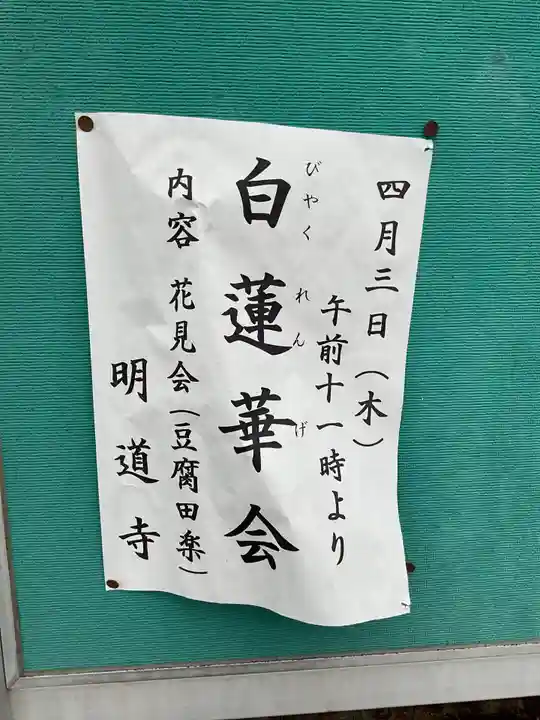 四月三日(木)
午前十一時より
びゃくれんげ
白蓮華会
内容 花見会(豆腐田楽)
明道寺